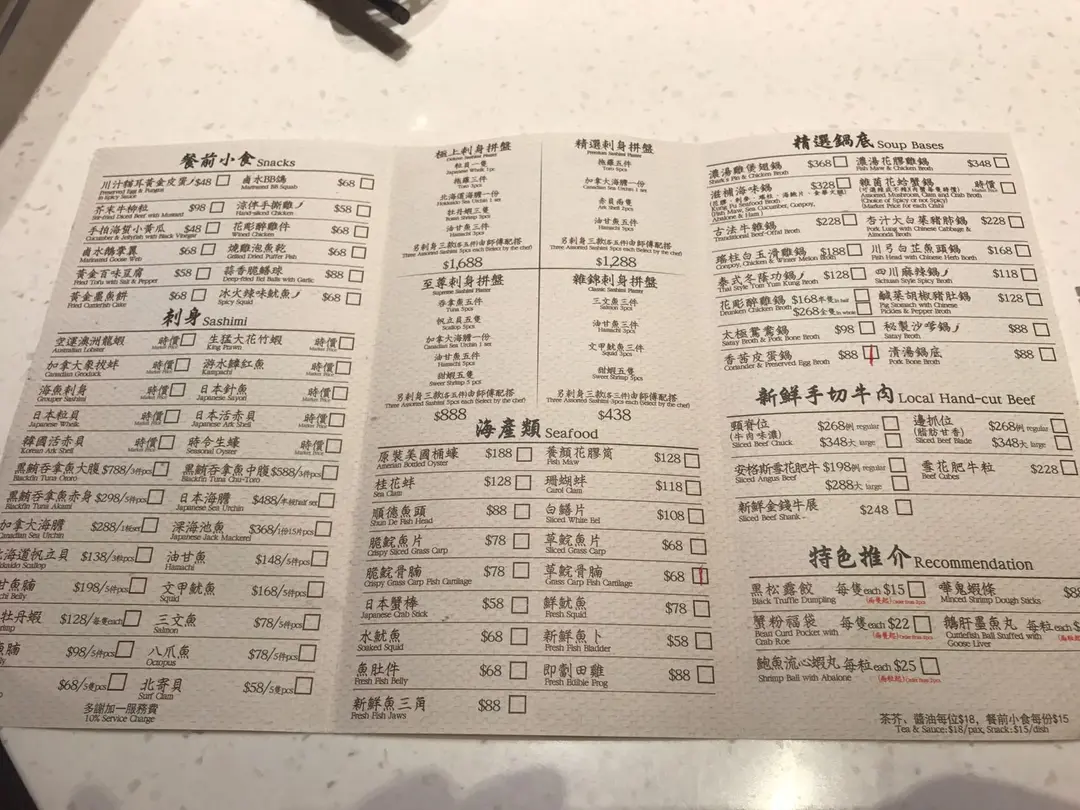 餐前小食 Snacks
川汁雲耳黃金皮蛋 $48 滷水BB鴿 $68
Preserved Egg & Fungus in Sichuan Sauce Marinated BB Squab
芥末牛柳粒 $98 涼伴手撕雞 $58
Stir-fried Diced Beef with Mustard Hand-sliced Chicken
手拍海蜇小黃瓜 $48 花彫醉雞件 $68
Cucumber & Jellyfish with Black Vinegar Wined Chicken
滷水鵝掌翼 $68 燒雞泡魚乾 $68
Marinated Goose Web Grilled Dried Puffer Fish
黃金百味豆腐 $58 蒜香脆鱔球 $88
Fried Tofu with Salt & Pepper Deep-fried Eel Balls with Garlic
黃金墨魚餅 $68 冰火辣味魷魚 $68
Fried Cuttlefish Cake Spicy Squid
刺身 Sashimi
空運澳洲龍蝦 時價 生猛大花竹蝦 時價
Australian Lobster Market Price King Prawn Market Price
加拿大象拔蚌 時價 游水鱆紅魚 時價
Canadian Geoduck Market Price Kampachi Market Price
海魚刺身 時價 日本針魚 時價
Grouper Sashimi Market Price Japanese Sayori Market Price
日本粒貝 時價 日本活赤貝 時價
Japanese Whelk Market Price Japanese Ark Shell Market Price
韓國活赤貝 時價 時令生蠔 時價
Korean Ark Shell Market Price Seasonal Oyster Market Price
黑鮪吞拿魚大腹 $788/5件pcs 黑鮪吞拿魚中腹 $588/5件pcs
Blackfin Tuna Otoro Blackfin Tuna Chu-Toro
黑鮪吞拿魚赤身 $298/5件pcs 日本海膽 $488/半板half set
Blackfin Tuna Akami Japanese Sea Urchin
加拿大海膽 $288/1板set 深海池魚 $368/1份15片pcs
Canadian Sea Urchin Japanese Jack Mackerel
海道帆立貝 $138/3粒pcs 油甘魚 $148/5件pcs
Hokkaido Scallop Hamachi
甘魚腩 $198/5件pcs 文甲魷魚 $168/5件pcs
Belly Squid
牡丹蝦 $128/每隻each 三文魚 $78/5件pcs
Salmon
魚腩 $98/5件pcs 八爪魚 $78/5件pcs
Octopus
$68/5隻pcs 北寄貝 $58/5隻pcs
Surf Clam
多謝加一服務費
10% Service Charge
極上刺身拼盤
Deluxe Sashimi Platter
粒貝一隻
Japanese Whelk 1pc
拖羅三件
Toro 3pcs
北海道海膽一份
Hokkaido Sea Urchin 1 set
牡丹蝦三隻
油甘魚三件
Hamachi 3pcs
另刺身三款(各三件)由師傅配搭
Three Assorted Sashimi 3pcs each (Select by the chef)
$1,688
精選刺身拼盤
Premium Sashimi Platter
拖羅五件
Toro 5pcs
加拿大海膽一份
Canadian Sea Urchin 1 set
赤貝兩隻
Ark Shell 2pcs
油甘魚五件
Hamachi 5pcs
另刺身三款(各五件)由師傅配搭
Three Assorted Sashimi 5pcs each (Select by the chef)
$1,288
至尊刺身拼盤
Supreme Sashimi Platter
吞拿魚五件
Tuna 5pcs
帆立貝五隻
Scallop 5pcs
加拿大海膽一份
Canadian Sea Urchin 1 set
油甘魚五件
Hamachi 5pcs
甜蝦五隻
Sweet Shrimp 5 pcs
另刺身三款(各五件)由師傅配搭
Three Assorted Sashimi 5pcs each (Select by the chef)
$888
雜錦刺身拼盤
Classic Sashimi Platter
三文魚五件
Salmon 5pcs
油甘魚五件
Hamachi 5pcs
文甲魷魚五件
Squid 5pcs
甜蝦五隻
Sweet Shrimp 5pcs
另刺身三款(各五件)由師傅配搭
Three Assorted Sashimi 5pcs each (Select by the chef)
$438
海產類 Seafood
原裝美國桶蠔 $188 養顏花膠筒 $128
Amerian Bottled Oyster Fish Maw
桂花蚌 $128 珊瑚蚌 $118
Sea Clam Carol Clam
順德魚頭 $88 白鱔片 $108
Shun De Fish Head Sliced White Eel
脆鯇魚片 $78 草鯇魚片 $68
Crispy Sliced Grass Carp Sliced Grass Carp
脆鯇骨腩 $78 草鯇骨腩 $68
Crispy Grass Carp Fish Cartilage Grass Carp Fish Cartilage
日本蟹棒 $58 鮮魷魚 $78
Japanese Crab Stick Fresh Squid
水魷魚 $68 新鮮魚卜 $58
Soaked Squid Fresh Fish Bladder
魚肚件 $68 即劏田雞 $88
Fresh Fish Belly Fresh Edible Frog
新鮮魚三角 $88
Fresh Fish Jaws
精選鍋底 Soup Bases
濃湯雞煲翅鍋 $368 濃湯花膠雞鍋 $348
Shark's Fin & Chicken Broth Fish Maw & Chicken Broth
滋補海味鍋 $328 雜菌花蛤蟹鍋 時價
Kung Fu Seafood Broth Assorted Mushroom, Clam and Crab Broth
(Fish Maw, Sea Cucumber, Conpoy, Abalone & Ham) (Choice of Spicy or not Spicy)
(Market Price for each Crab)
古法牛雜鍋 $228 杏汁大白菜豬肺鍋 $228
Traditional Beef-Offal Broth Pork Lung with Chinese Cabbage & Almonds Broth
瑤柱白玉滑雞鍋 $188 川弓白芷魚頭鍋 $168
Conpoy, Chicken & Winter Melon Broth Fish Head with Chinese Herb Borth
泰式冬蔭功鍋 $128 四川麻辣鍋 $118
Thai Style Tom Yum Kung Broth Sichuan Style Spicy Broth
花彫醉雞鍋 $168半隻in half 鹹菜胡椒豬肚鍋 $128
Drunken Chicken Broth $268全隻in whole Pig Stomach with Chinese Pickles & Pepper Broth
太極鴛鴦鍋 $98 秘製沙爹鍋 $88
Satay Broth & Pork Bone Broth Satay Broth
香茜皮蛋鍋 $88 清湯鍋底 $88
Coriander & Preserved Egg Broth Pork Bone Broth
新鮮手切牛肉 Local Hand-cut Beef
頸脊位 $268例 regular 邊抓位 $268例 regular
(牛肉味濃) (脂肪甘香)
Sliced Beef Chuck $348大 large Sliced Beef Blade $348大 large
安格斯雪花肥牛 $198例 regular 雪花肥牛粒 $228
Sliced Angus Beef $288大 large Beef Cubes
新鮮金錢牛展 $248
Sliced Beef Shank
特色推介 Recommendation
黑松露餃 每隻each $15 嘩鬼蝦條 $88
Black Truffle Dumpling (兩隻起) Order from 2pcs Minced Shrimp Dough Sticks
蟹粉福袋 每隻each $22 鵝肝墨魚丸 每粒each
Bean Curd Pocket with Crab Roe (兩隻起) Order from 2pcs Cuttlefish Ball Stuffed with Goose Liver
鮑魚流心蝦丸 每粒each $25
Shrimp Ball with Abalone (兩粒起) Order from 2pcs
茶芥、醬油每位$18, 餐前小食每份$15
Tea & Sauce:$18/pax, Snack:$15/dish